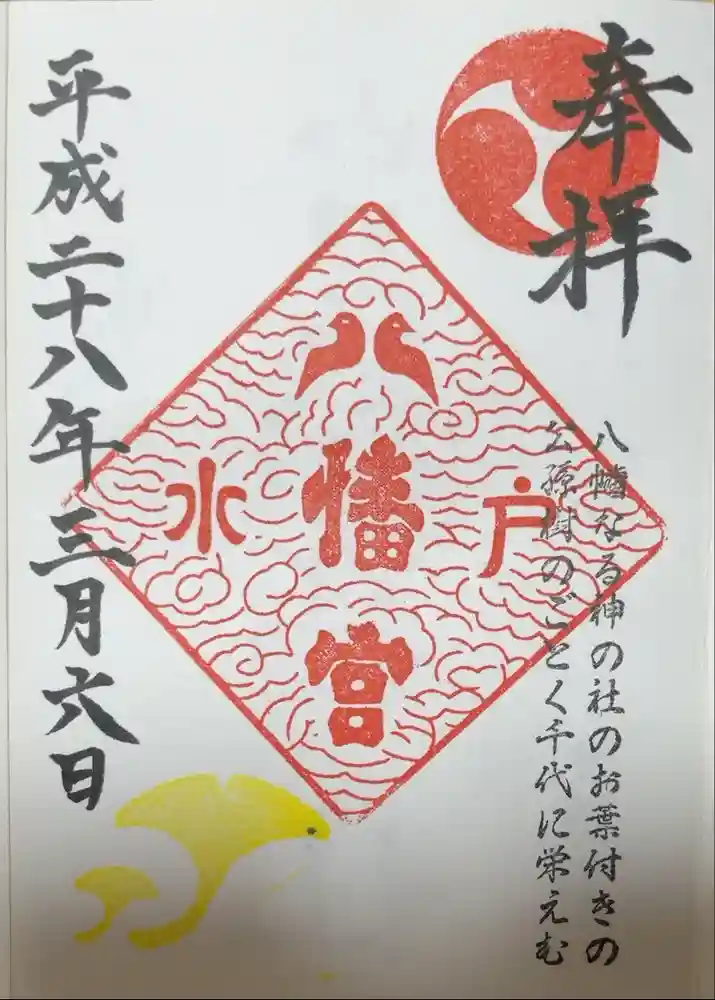 奉拝
八幡なる神の社のお葉付きの
公孫樹のごとく千代に栄えむ
水戸
八幡宮
平成二十八年三月六日